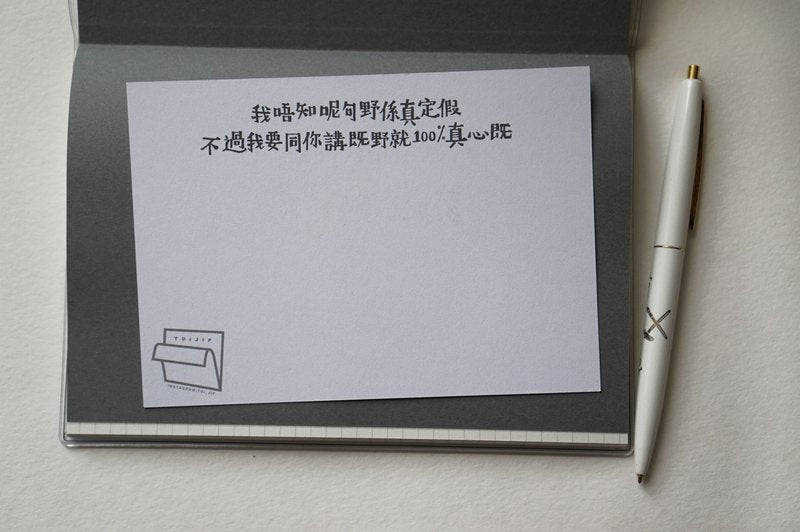 我唔知呢句野係真定假
不過我要同你講既野就100%真心既
TUIJIP
INSTAGRAM:TUI_JIP